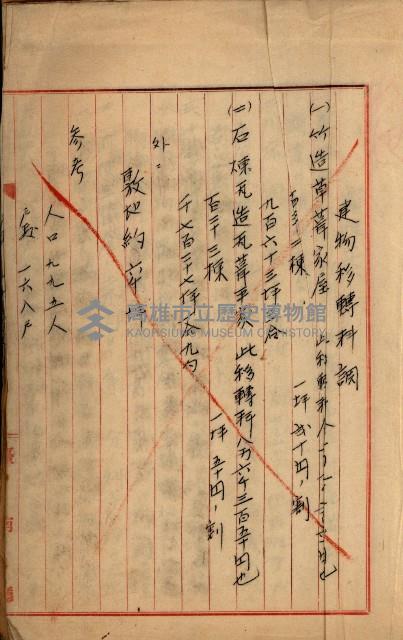 建物移轉料調
(一) 竹造草葺家屋 此移轉料
二棟
九百六十三坪
一坪 弐十円ノ割
(二) 石煉瓦造瓦葺平家 此移轉料八万六千三百五十円也
百三十三棟
千七百二十七坪 九勺
一坪 五十円ノ割
外ニ
敷地約六千坪
参考
人口 九九五人
戸数 一六八戸
高雄市立歷史博物館
KAOHSIUNG MUSEUM OF HISTORY